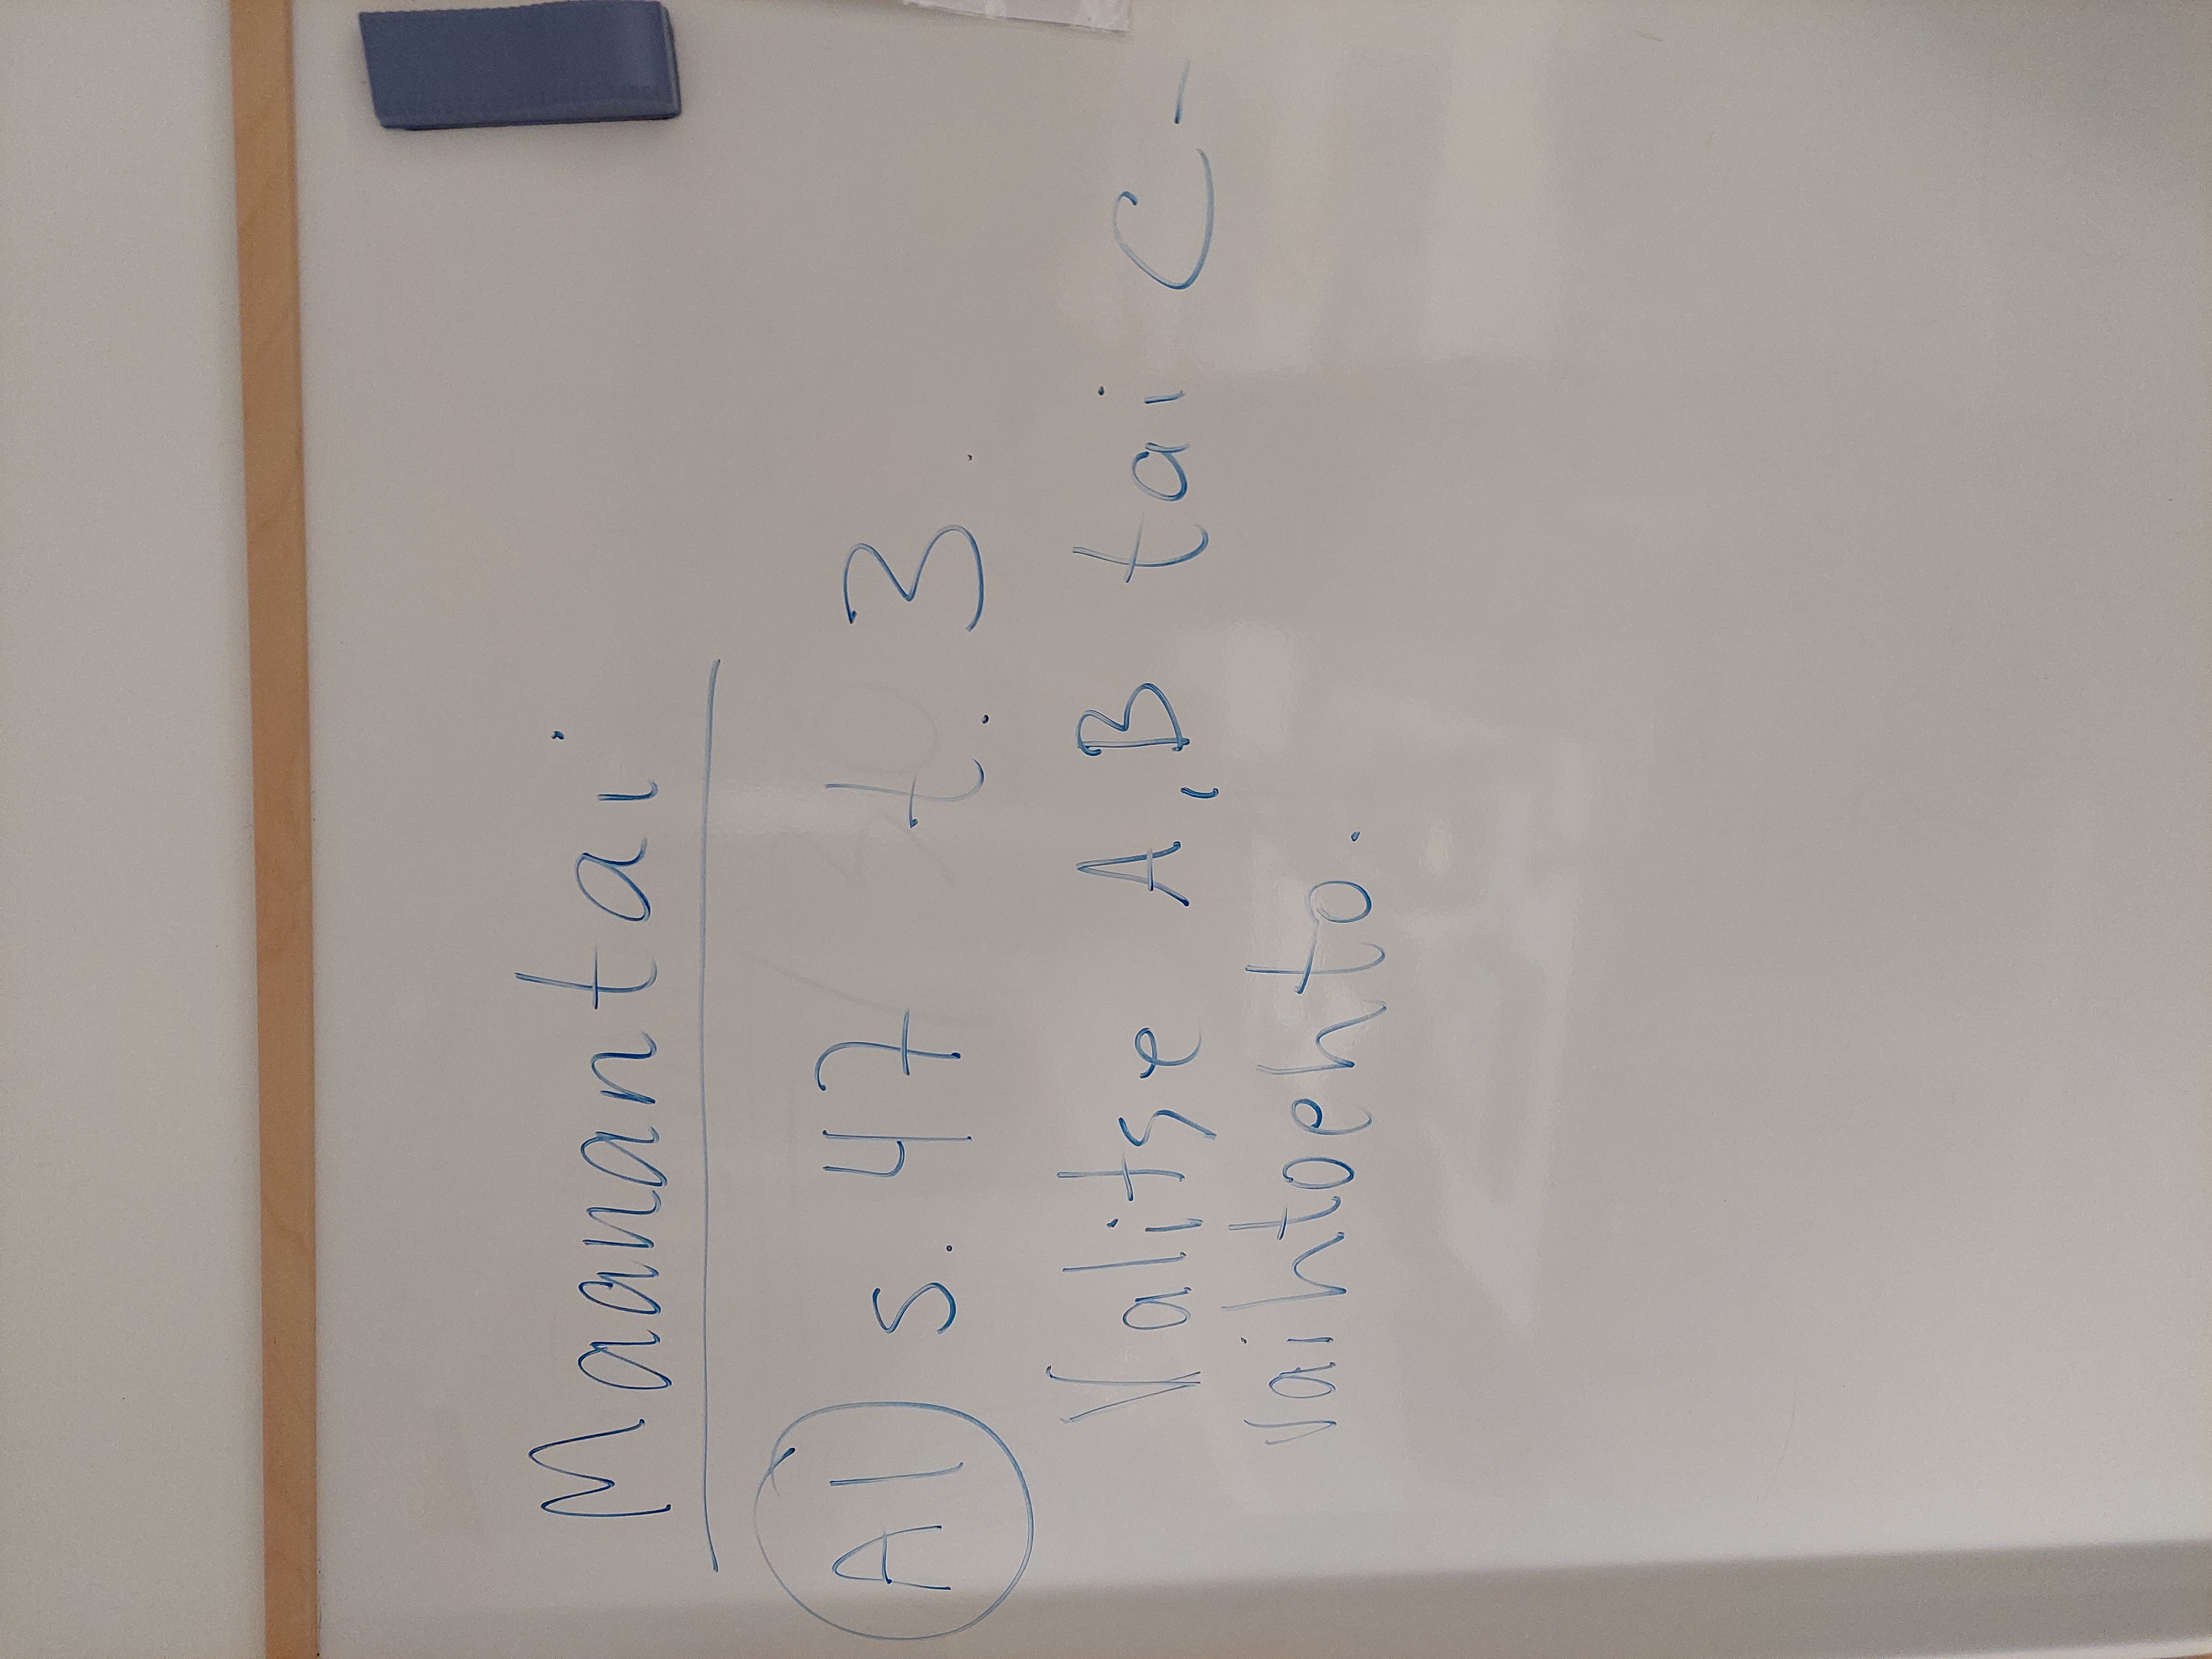 Maanantai
A1 s. 47 t. 3.
Valitse A, B tai C-
vaihtoehto.